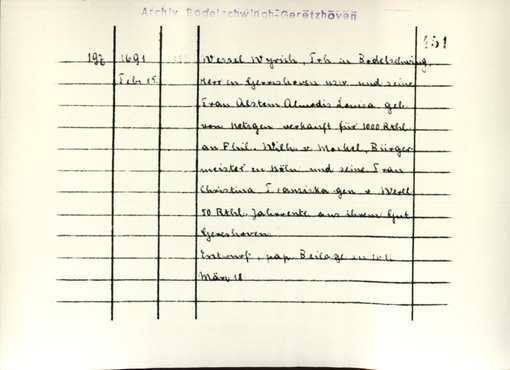 Archiv Bodelschwingh-Geretzhoven
451
196 1691 Wessel Wyrich, Frh in Bodelschwing,
Febr 15. Herr in Gerrshoven usw. und seine
Frau Alstein Almodis Louisa geb.
von Hetzgen verkauft für 1000 Rthl.
an Phil. Wilh. v. Morkel, Bürger-
meister in Köln und seine Frau
Christina Franziska gen. v. Werll
50 Rthl. Jahrrente aus ihrem Gut
Gereshoven.
Entwurf, pap. Beilage zu
März 18